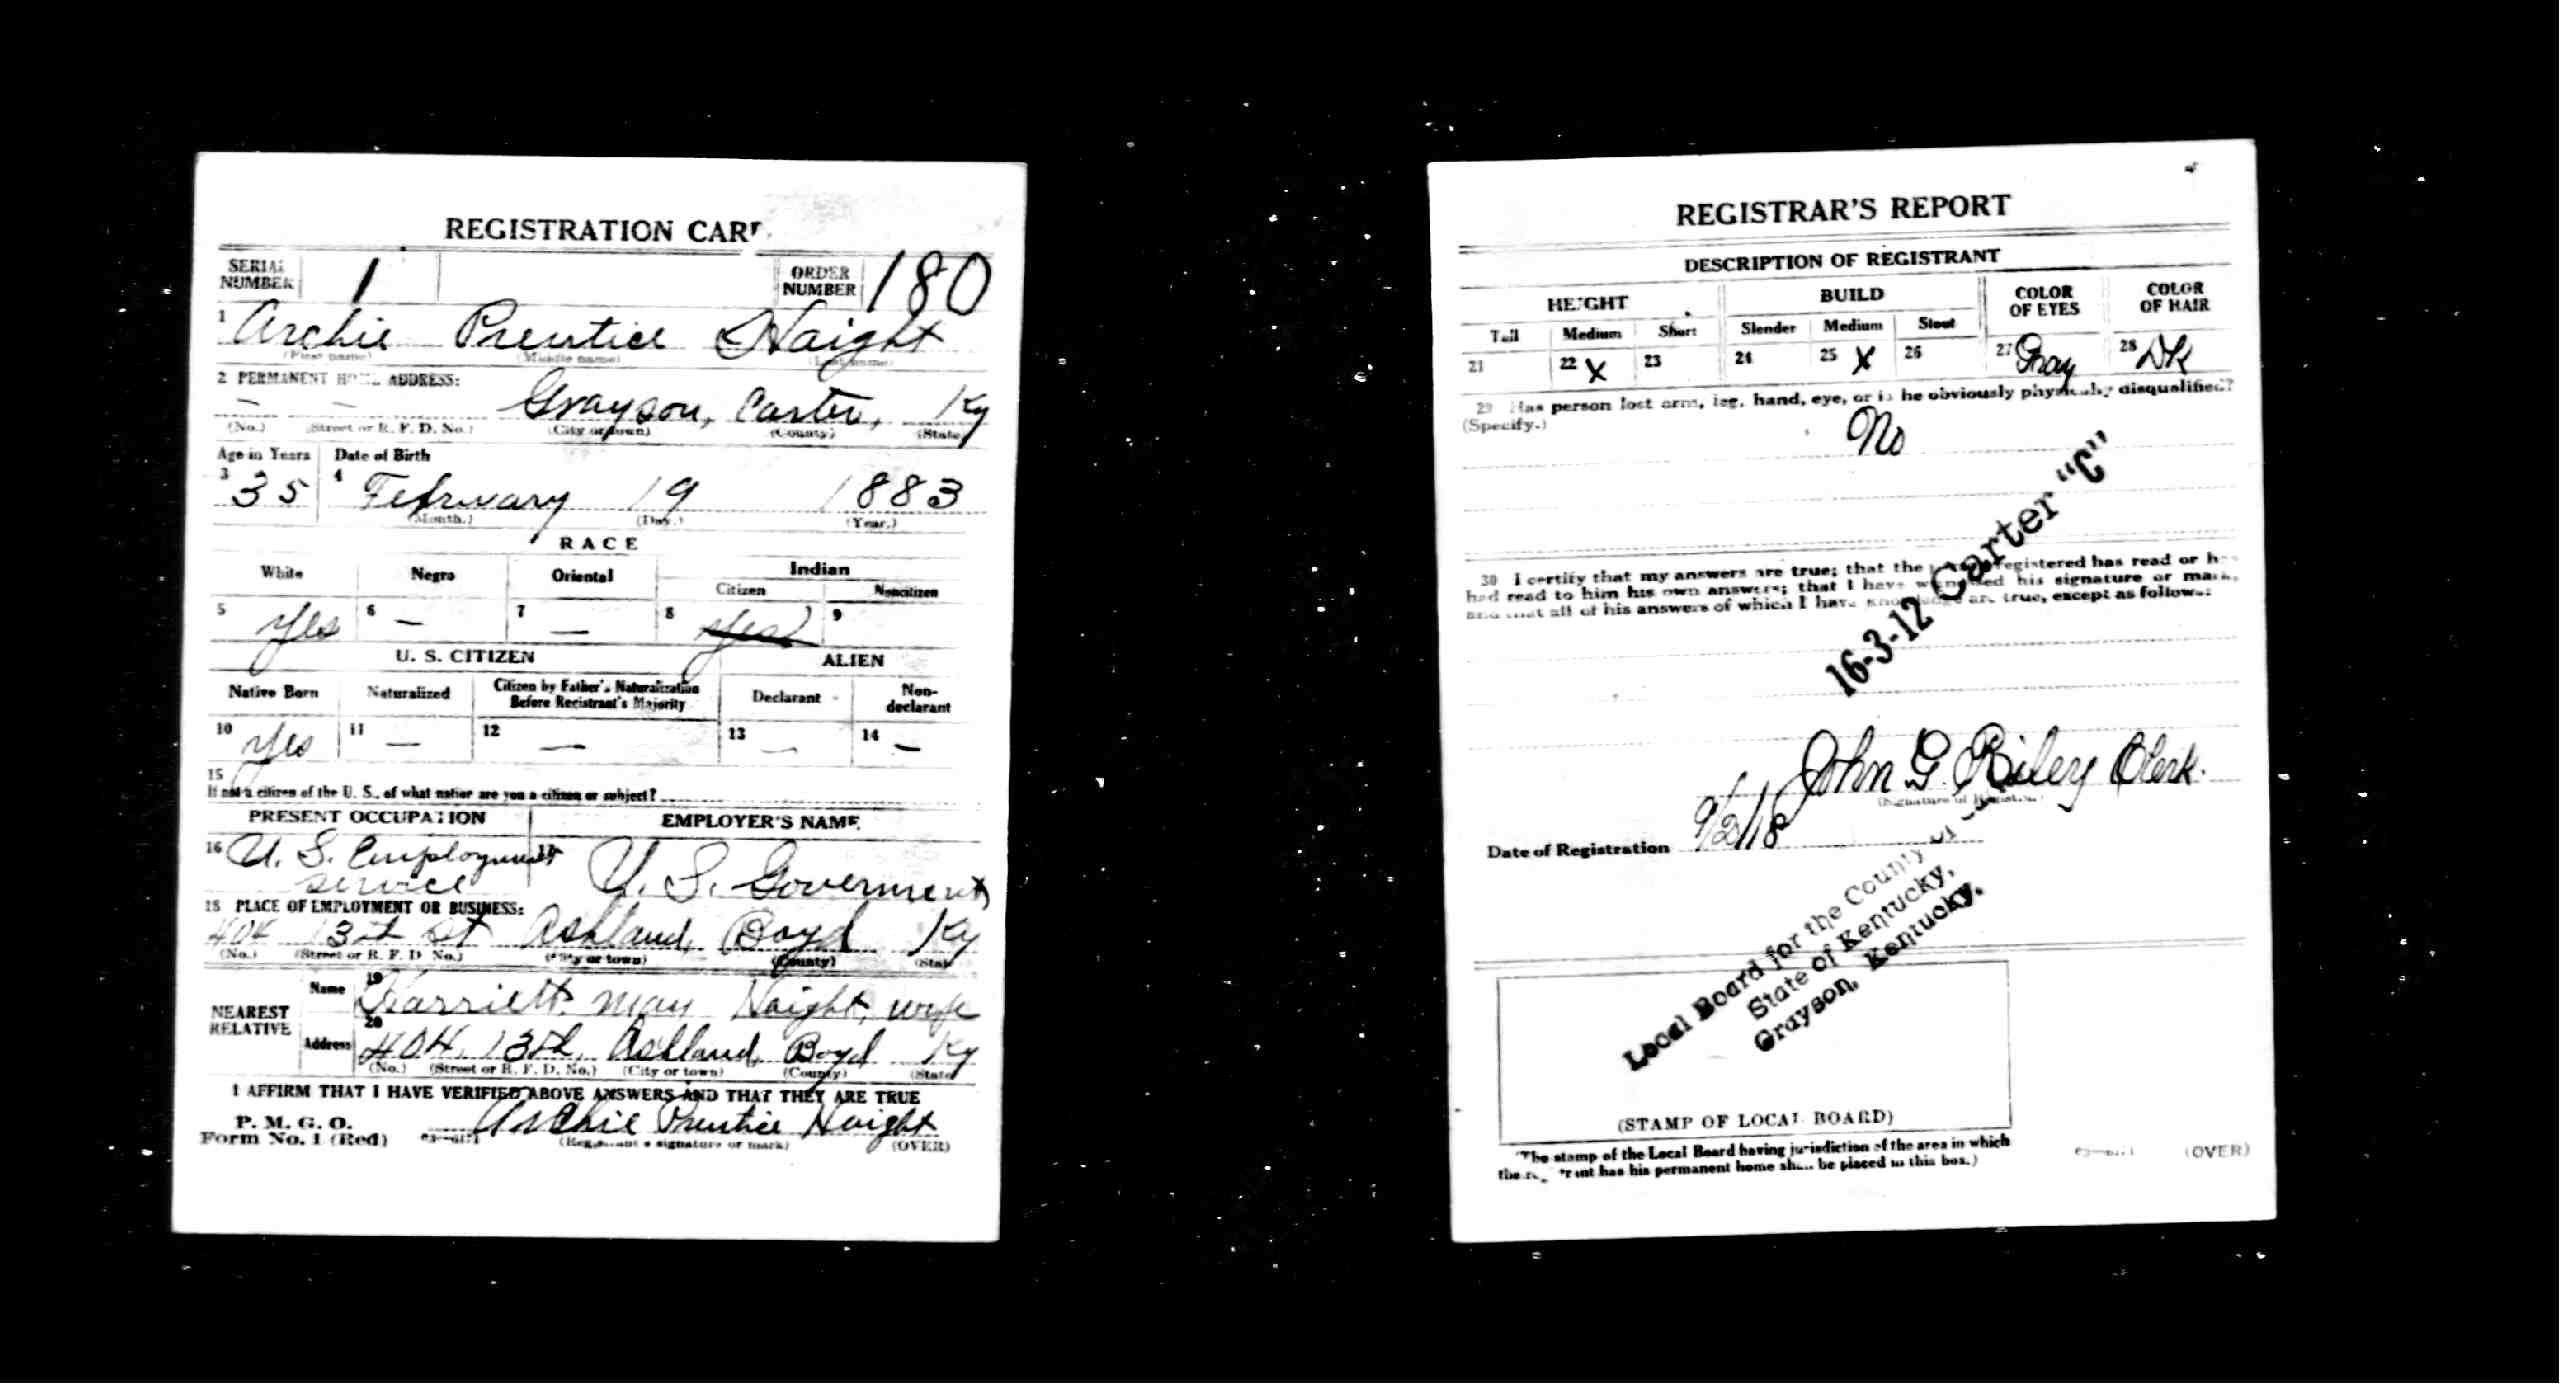 REGISTRATION CARD
SERIAL NUMBER 1 ORDER NUMBER 180
1 Archie Prentice Haight
(First name) (Middle name) (Last name)
2 PERMANENT HOME ADDRESS:
— — Grayson, Carter, Ky
(No.) (Street or R. F. D. No.) (City or town) (County) (State)
Age in Years Date of Birth
3 35 4 February 19 1883
(Month.) (Day.) (Year.)
RACE
White Negro Oriental Indian
Citizen Noncitizen
5 Yes 6 — 7 — 8 Yes 9
U. S. CITIZEN ALIEN
Native Born Naturalized Citizen by Father's Naturalization Before Registrant's Majority Declarant Non-declarant
10 Yes 11 — 12 — 13 — 14 —
15
If not a citizen of the U. S., of what nation are you a citizen or subject?
PRESENT OCCUPATION EMPLOYER'S NAME
16 U. S. Employment service 17 U. S. Goverment
18 PLACE OF EMPLOYMENT OR BUSINESS:
404 13th St Ashland, Boyd Ky
(No.) (Street or R. F. D. No.) (City or town) (County) (State)
NEAREST RELATIVE
Name 19 Harriett May Haight, wife
Address 20 404, 13th, Ashland, Boyd Ky
(No.) (Street or R. F. D. No.) (City or town) (County) (State)
I AFFIRM THAT I HAVE VERIFIED ABOVE ANSWERS AND THAT THEY ARE TRUE
P. M. G. O.
Form No. 1 (Red) Archie Prentice Haight
(Registrant's signature or mark) (OVER)
REGISTRAR'S REPORT
DESCRIPTION OF REGISTRANT
HEIGHT BUILD COLOR OF EYES COLOR OF HAIR
Tall Medium Short Slender Medium Stout
21 22 X 23 24 25 X 26 27 Gray 28 Dk
29 Has person lost arm, leg, hand, eye, or is he obviously physically disqualified?
(Specify.) No
30 I certify that my answers are true; that the person registered has read or has
had read to him his own answers; that I have witnessed his signature or mark,
and that all of his answers of which I have knowledge are true, except as follows:
16-3-12 Carter "C"
John G. Riley Clerk.
(Signature of Registrar)
Date of Registration 9/12/18
Local Board for the County of
State of Kentucky,
Grayson, Kentucky.
(STAMP OF LOCAL BOARD)
(The stamp of the Local Board having jurisdiction of the area in which
the registrant has his permanent home shall be placed in this box.)
(OVER)